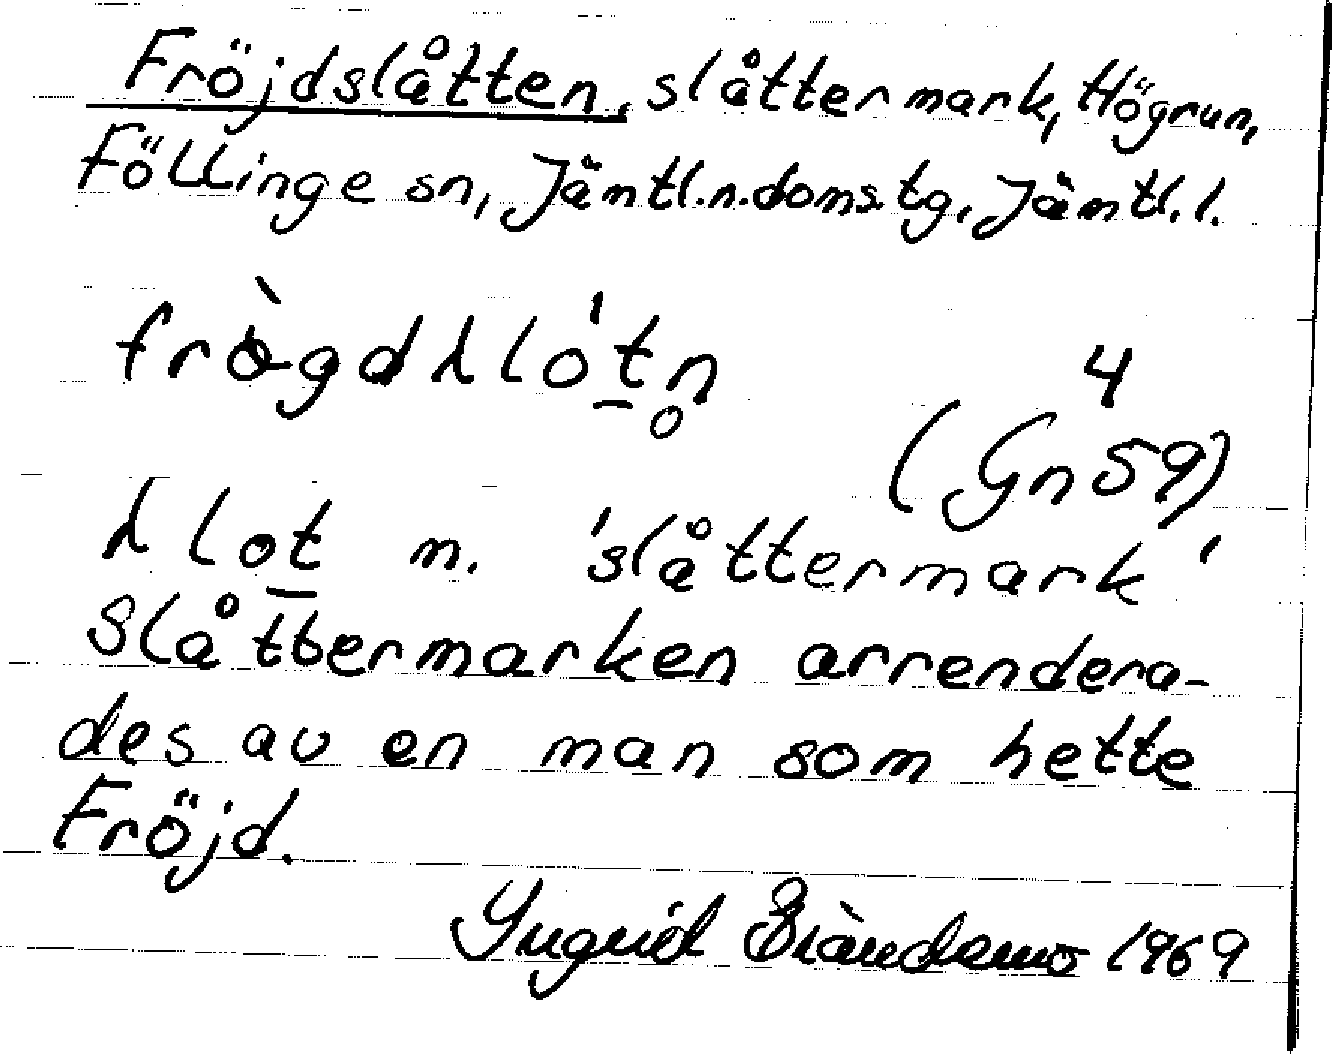 Fröjdslåtten, slåttermark, Högrun,
Föllinge sn, Jämtl.n.doms.tg, Jämtl.l.
frò̵gdλlót̠n̥
4
(Gn59)
λlot̠ n. 'slåttermark'
Slåttermarken arrendera-
des av en man som hette
Fröjd.
Yngvid 1969